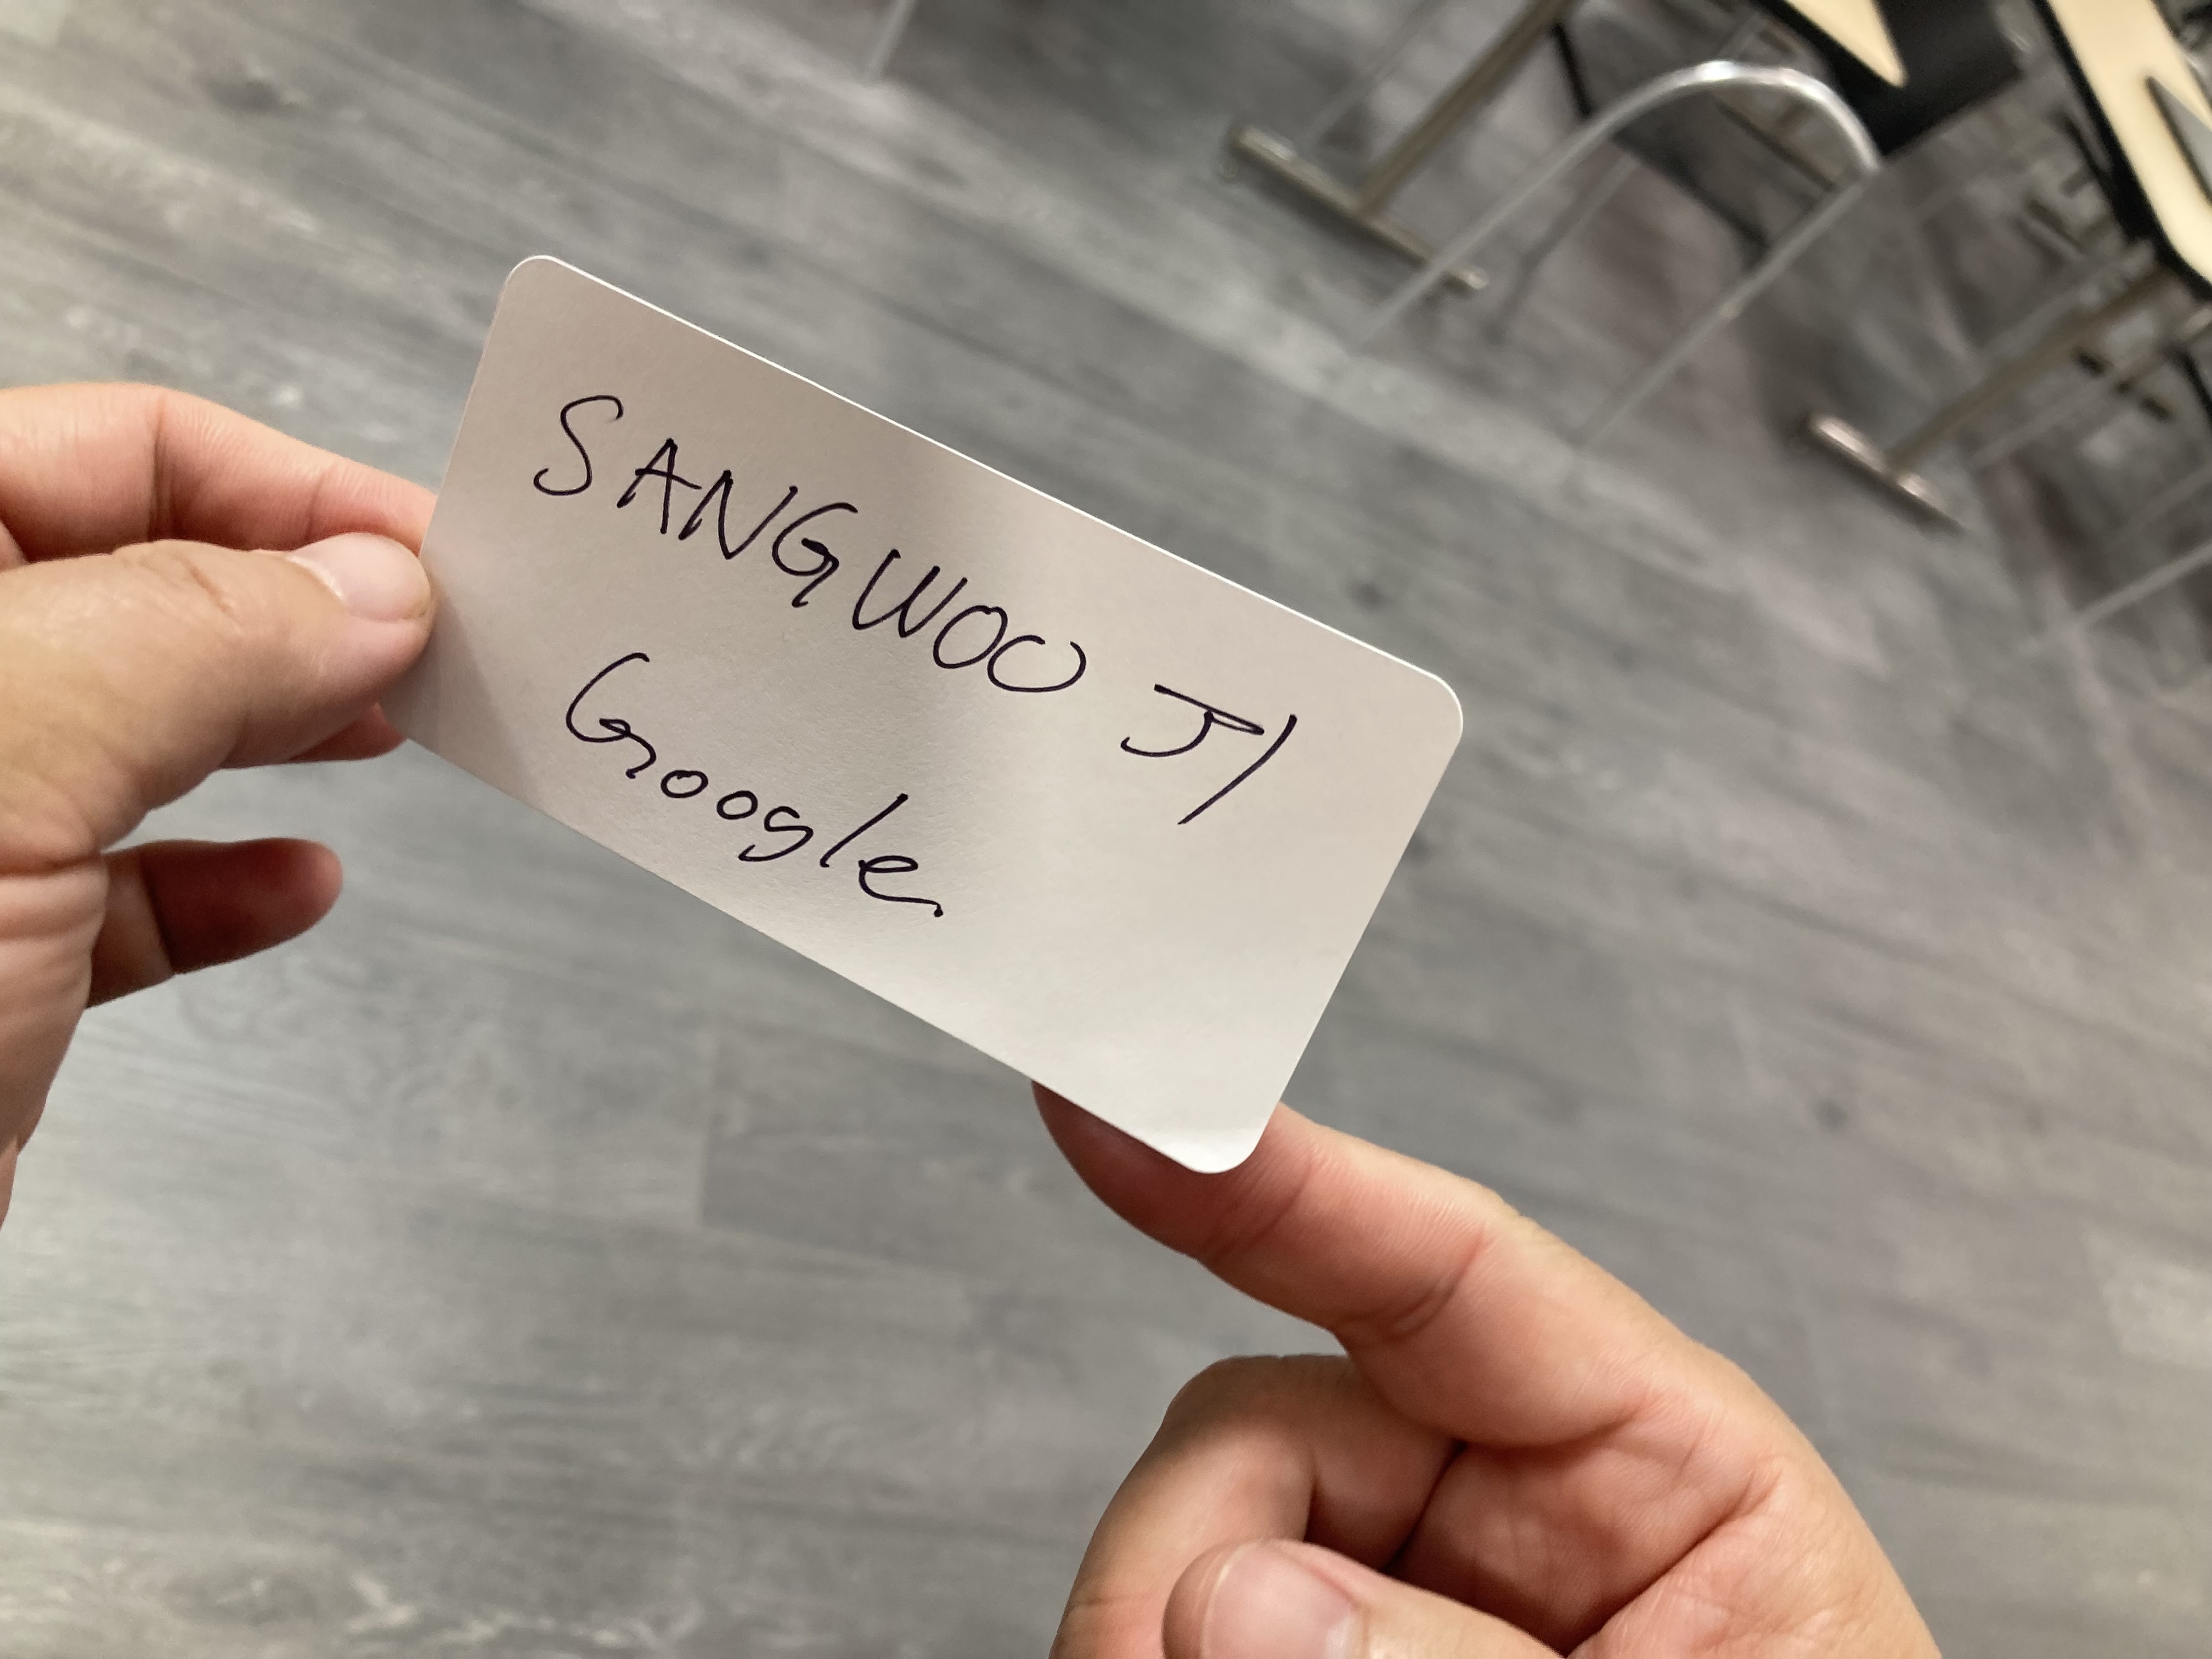 SANGWOO JI
Google